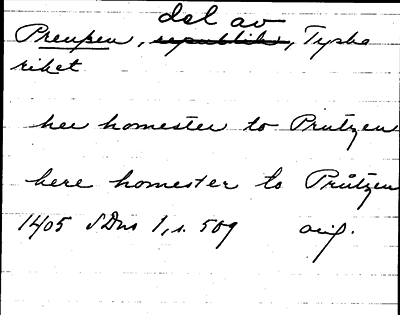 del av
Preussen, republik, Tyska
riket
hee homester to Prutzen
here homester to Průtzen
1405 SDns 1, s. 509 orig.